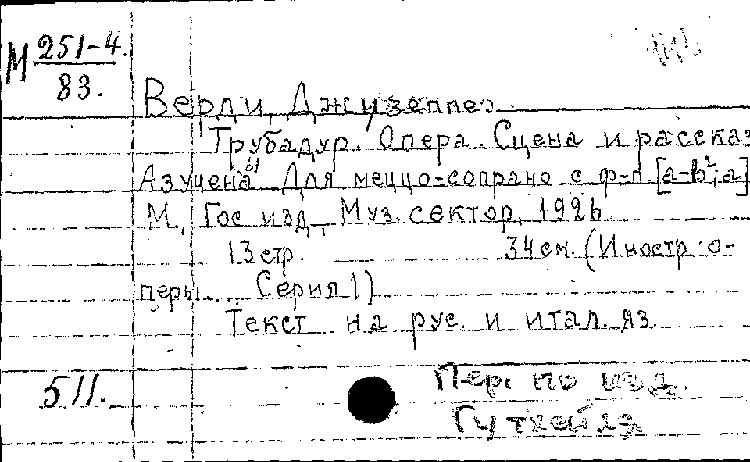 М 251-4.
83.
Верди, Джузеппе.
Трубадур. Опера. Сцена и рассказ
Азучены. Для меццо-сопрано с ф-п. [a-b²; a]
М., Гос. изд., Муз. сектор, 1926
13 стр. 34 см. (Иностр. о-
перы. Серия 1)
Текст на рус. и итал. яз.
511.
Пер. по изд.
Гутхейля